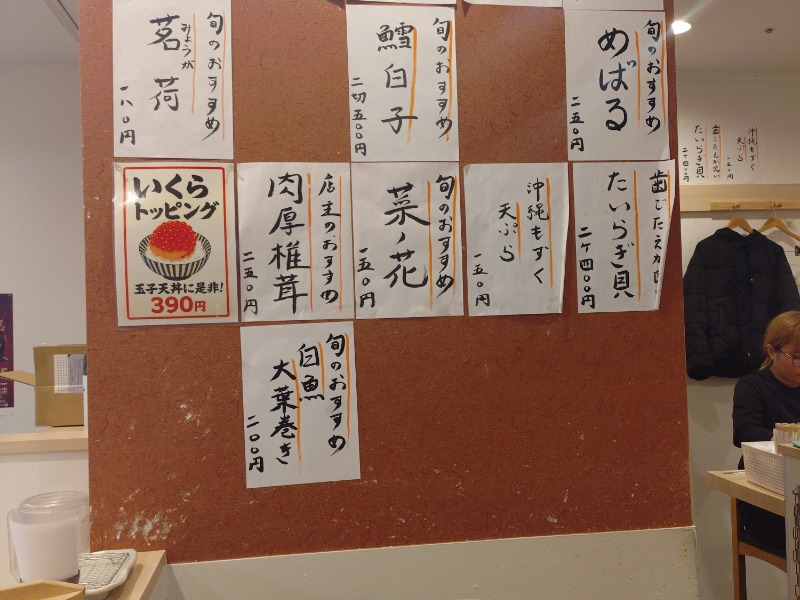 旬のおすすめ
みょうが
茗荷
一八〇円
旬のおすすめ
鱈白子
二切五〇円
旬のおすすめ
めばる
二五〇円
いくら
トッピング
玉子天丼に是非!
390円
店主のおすすめ
肉厚椎茸
二五〇円
旬のおすすめ
菜ノ花
一五〇円
沖縄もずく
天ぷら
一五〇円
たいらぎ貝
二ケ四〇〇円
旬のおすすめ
白魚
大葉巻き
二〇〇円
沖縄もずく
天ぷら
一五〇円
たいらぎ貝
二ケ四〇〇円